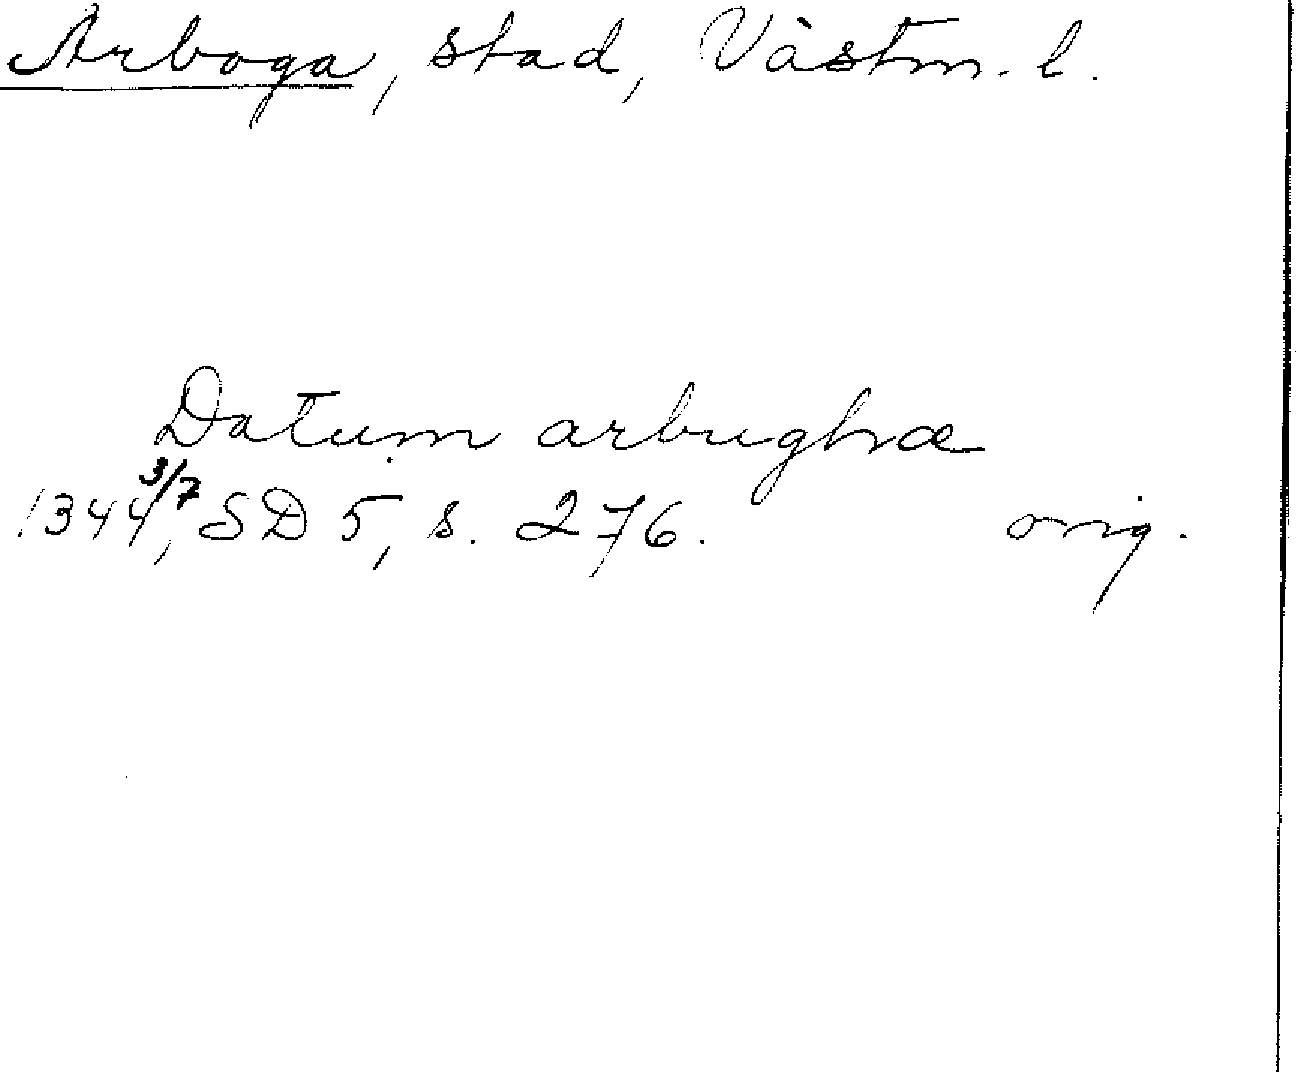 Arboga, stad, Västm. l.
Datum arbughæ
1344 3/7, SD 5, s. 276. orig.